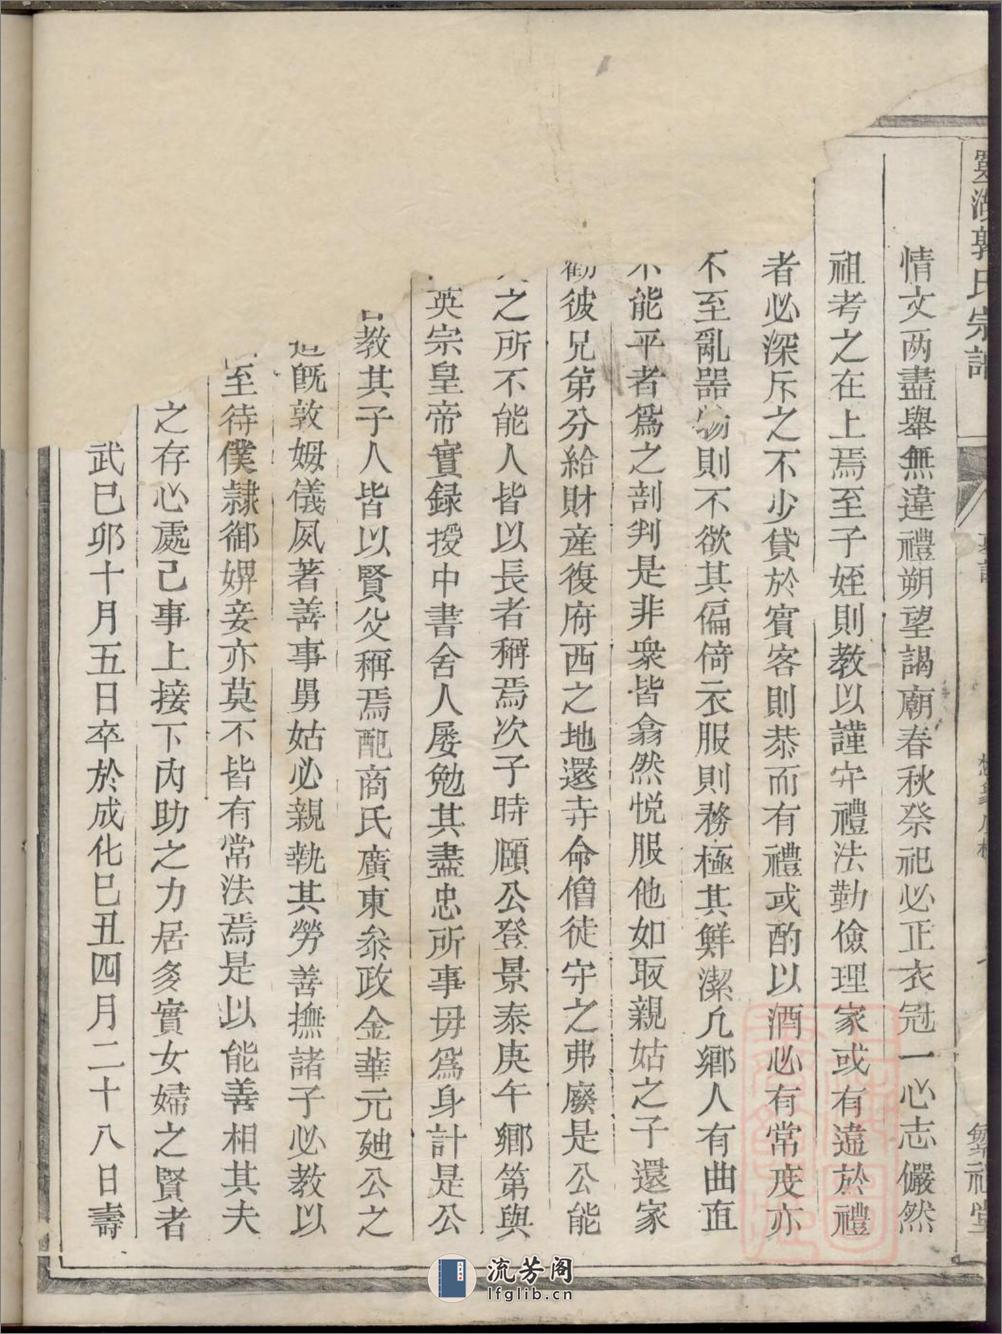 郭氏宗譜
情文两盡舉無違禮朔望謁廟春秋祭祀必正衣冠一心志儼然
祖考之在上焉至子姪則教以謹守禮法勤儉理家或有違於禮
者必深斥之不少貸於賓客則恭而有禮或酌以酒必有常度亦
不至亂器物則不欲其偏倚衣服則務極其鮮潔凢鄉人有曲直
不能平者爲之剖判是非衆皆翕然悦服他如取親姑之子還家
勸彼兄第分給財産復府西之地還寺命僧徒守之弗廢是公能
之所不能人皆以長者稱焉次子時頥公登景泰庚午鄉第與
英宗皇帝實録授中書舍人屡勉其盡忠所事毋爲身計是公
教其子人皆以賢父稱焉配商氏廣東叅政金華元廸公之
旣敦姆儀夙著善事舅姑必親執其勞善撫諸子必教以
至待僕隷御婢妾亦莫不皆有常法焉是以能善相其夫
之存心處己事上接下内助之力居多實女婦之賢者
武巳卯十月五日卒於成化巳丑四月二十八日壽
流芳阁
lfglib.cn